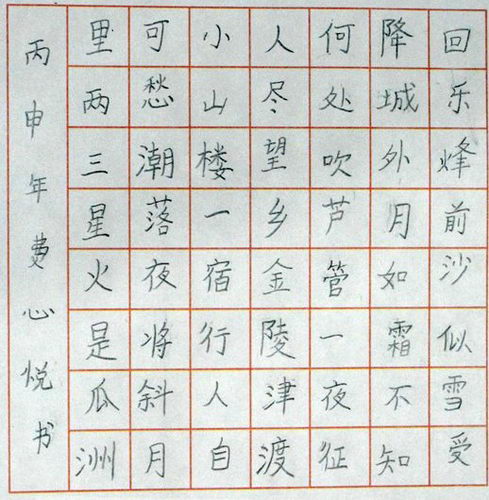 回乐烽前沙似雪受
降城外月如霜不知
何处吹芦管一夜征
人尽望乡金陵津渡
小山楼一宿行人自
可愁潮落夜将斜月
里两三星火是瓜洲
丙申年费心悦书